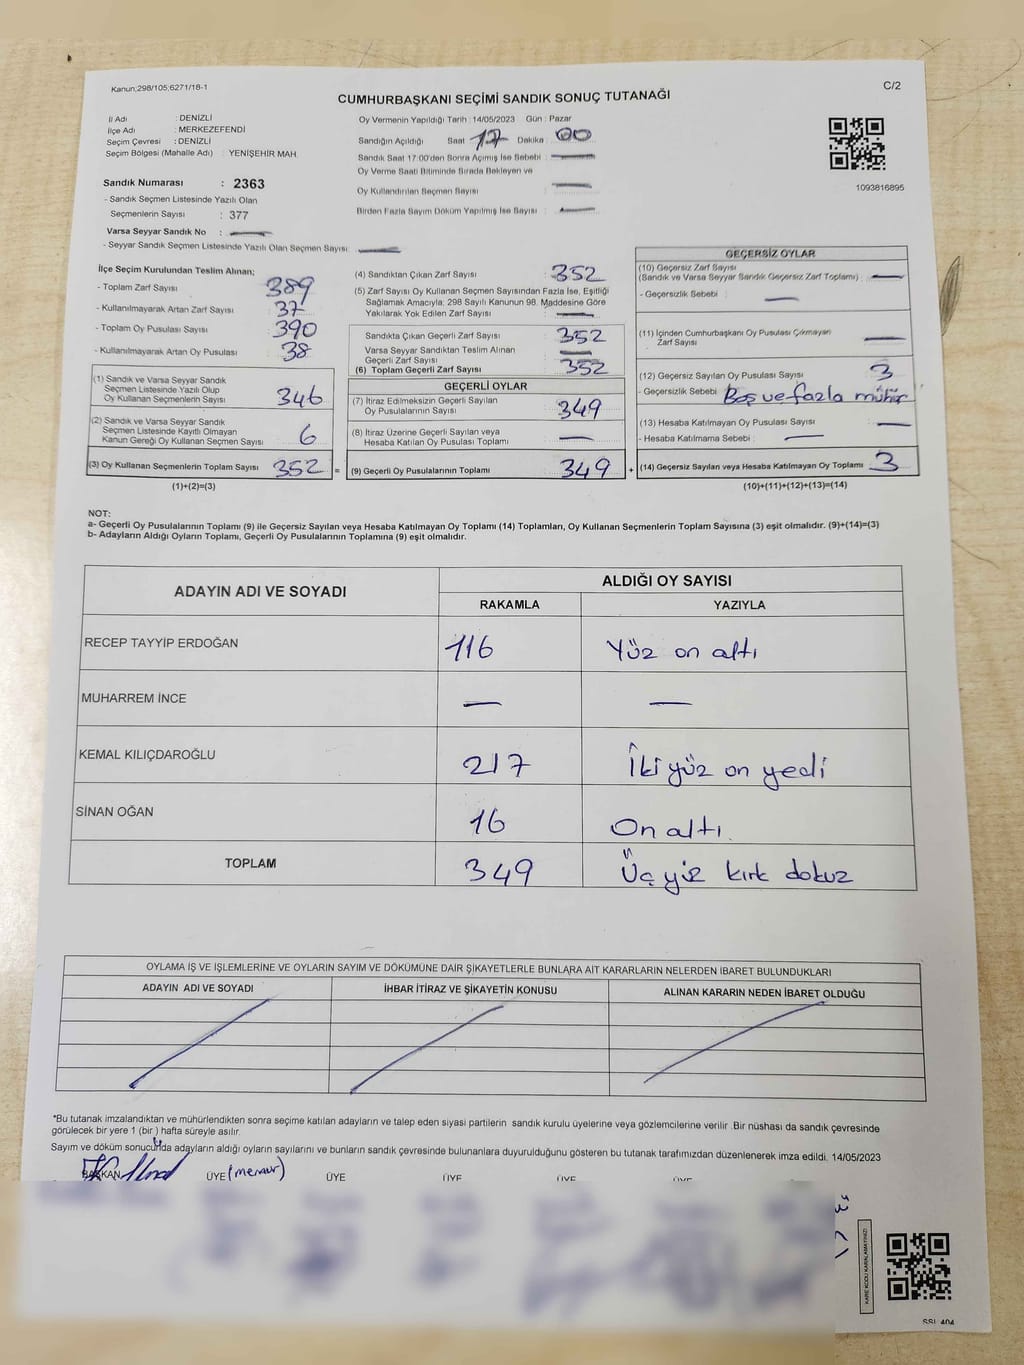 Kanun;298/105;6271/18-1
C/2
CUMHURBAŞKANI SEÇİMİ SANDIK SONUÇ TUTANAĞI
İl Adı : DENİZLİ
İlçe Adı : MERKEZEFENDİ
Seçim Çevresi : DENİZLİ
Seçim Bölgesi (Mahalle Adı) : YENİŞEHİR MAH.
Sandık Numarası : 2363
- Sandık Seçmen Listesinde Yazılı Olan
Seçmenlerin Sayısı : 377
Varsa Seyyar Sandık No : —
- Seyyar Sandık Seçmen Listesinde Yazılı Olan Seçmen Sayısı : —
Oy Vermenin Yapıldığı Tarih : 14/05/2023 Gün : Pazar
Sandığın Açıldığı Saat 17 Dakika : 00
Sandık Saat 17:00'den Sonra Açılmış İse Sebebi : —
Oy Verme Saati Bitiminde Sırada Bekleyen ve
Oy Kullandırılan Seçmen Sayısı : —
Birden Fazla Sayım Döküm Yapılmış İse Sayısı : —
1093816895
İlçe Seçim Kurulundan Teslim Alınan;
- Toplam Zarf Sayısı : 389
- Kullanılmayarak Artan Zarf Sayısı : 37
- Toplam Oy Pusulası Sayısı : 390
- Kullanılmayarak Artan Oy Pusulası : 38
(1) Sandık ve Varsa Seyyar Sandık
Seçmen Listesinde Yazılı Olup
Oy Kullanan Seçmenlerin Sayısı : 346
(2) Sandık ve Varsa Seyyar Sandık
Seçmen Listesinde Kayıtlı Olmayan
Kanun Gereği Oy Kullanan Seçmen Sayısı : 6
(3) Oy Kullanan Seçmenlerin Toplam Sayısı : 352 =
(1)+(2)=(3)
(4) Sandıktan Çıkan Zarf Sayısı : 352
(5) Zarf Sayısı Oy Kullanan Seçmen Sayısından Fazla İse, Eşitliği
Sağlamak Amacıyla; 298 Sayılı Kanunun 98. Maddesine Göre
Yakılarak Yok Edilen Zarf Sayısı : —
Sandıkta Çıkan Geçerli Zarf Sayısı : 352
Varsa Seyyar Sandıktan Teslim Alınan
Geçerli Zarf Sayısı : —
(6) Toplam Geçerli Zarf Sayısı : 352
GEÇERLİ OYLAR
(7) İtiraz Edilmeksizin Geçerli Sayılan
Oy Pusulalarının Sayısı : 349
(8) İtiraz Üzerine Geçerli Sayılan veya
Hesaba Katılan Oy Pusulası Toplamı : —
(9) Geçerli Oy Pusulalarının Toplamı : 349 +
GEÇERSİZ OYLAR
(10) Geçersiz Zarf Sayısı
(Sandık ve Varsa Seyyar Sandık Geçersiz Zarf Toplamı) : —
- Geçersizlik Sebebi : —
(11) İçinden Cumhurbaşkanı Oy Pusulası Çıkmayan
Zarf Sayısı : —
(12) Geçersiz Sayılan Oy Pusulası Sayısı : 3
- Geçersizlik Sebebi : Boş ve fazla mühür
(13) Hesaba Katılmayan Oy Pusulası Sayısı : —
- Hesaba Katılmama Sebebi : —
(14) Geçersiz Sayılan veya Hesaba Katılmayan Oy Toplamı : 3
(10)+(11)+(12)+(13)=(14)
NOT:
a- Geçerli Oy Pusulalarının Toplamı (9) ile Geçersiz Sayılan veya Hesaba Katılmayan Oy Toplamı (14) Toplamları, Oy Kullanan Seçmenlerin Toplam Sayısına (3) eşit olmalıdır. (9)+(14)=(3)
b- Adayların Aldığı Oyların Toplamı, Geçerli Oy Pusulalarının Toplamına (9) eşit olmalıdır.
ADAYIN ADI VE SOYADI ALDIĞI OY SAYISI
RAKAMLA YAZIYLA
RECEP TAYYİP ERDOĞAN 116 Yüz on altı
MUHARREM İNCE — —
KEMAL KILIÇDAROĞLU 217 İki yüz on yedi
SİNAN OĞAN 16 On altı.
TOPLAM 349 Üç yüz kırk dokuz
OYLAMA İŞ VE İŞLEMLERİNE VE OYLARIN SAYIM VE DÖKÜMÜNE DAİR ŞİKAYETLERLE BUNLARA AİT KARARLARIN NELERDEN İBARET BULUNDUKLARI
ADAYIN ADI VE SOYADI İHBAR İTİRAZ VE ŞİKAYETİN KONUSU ALINAN KARARIN NEDEN İBARET OLDUĞU
*Bu tutanak imzalandıktan ve mühürlendikten sonra seçime katılan adayların ve talep eden siyasi partilerin sandık kurulu üyelerine veya gözlemcilerine verilir .Bir nüshası da sandık çevresinde
görülecek bir yere 1 (bir ) hafta süreyle asılır.
Sayım ve döküm sonucunda adayların aldığı oyların sayılarını ve bunların sandık çevresinde bulunanlara duyurulduğunu gösteren bu tutanak tarafımızdan düzenlenerek imza edildi. 14/05/2023
BAŞKAN ÜYE (memur) ÜYE ÜYE ÜYE ÜYE
KARE KODU KARALAMAYINIZ!